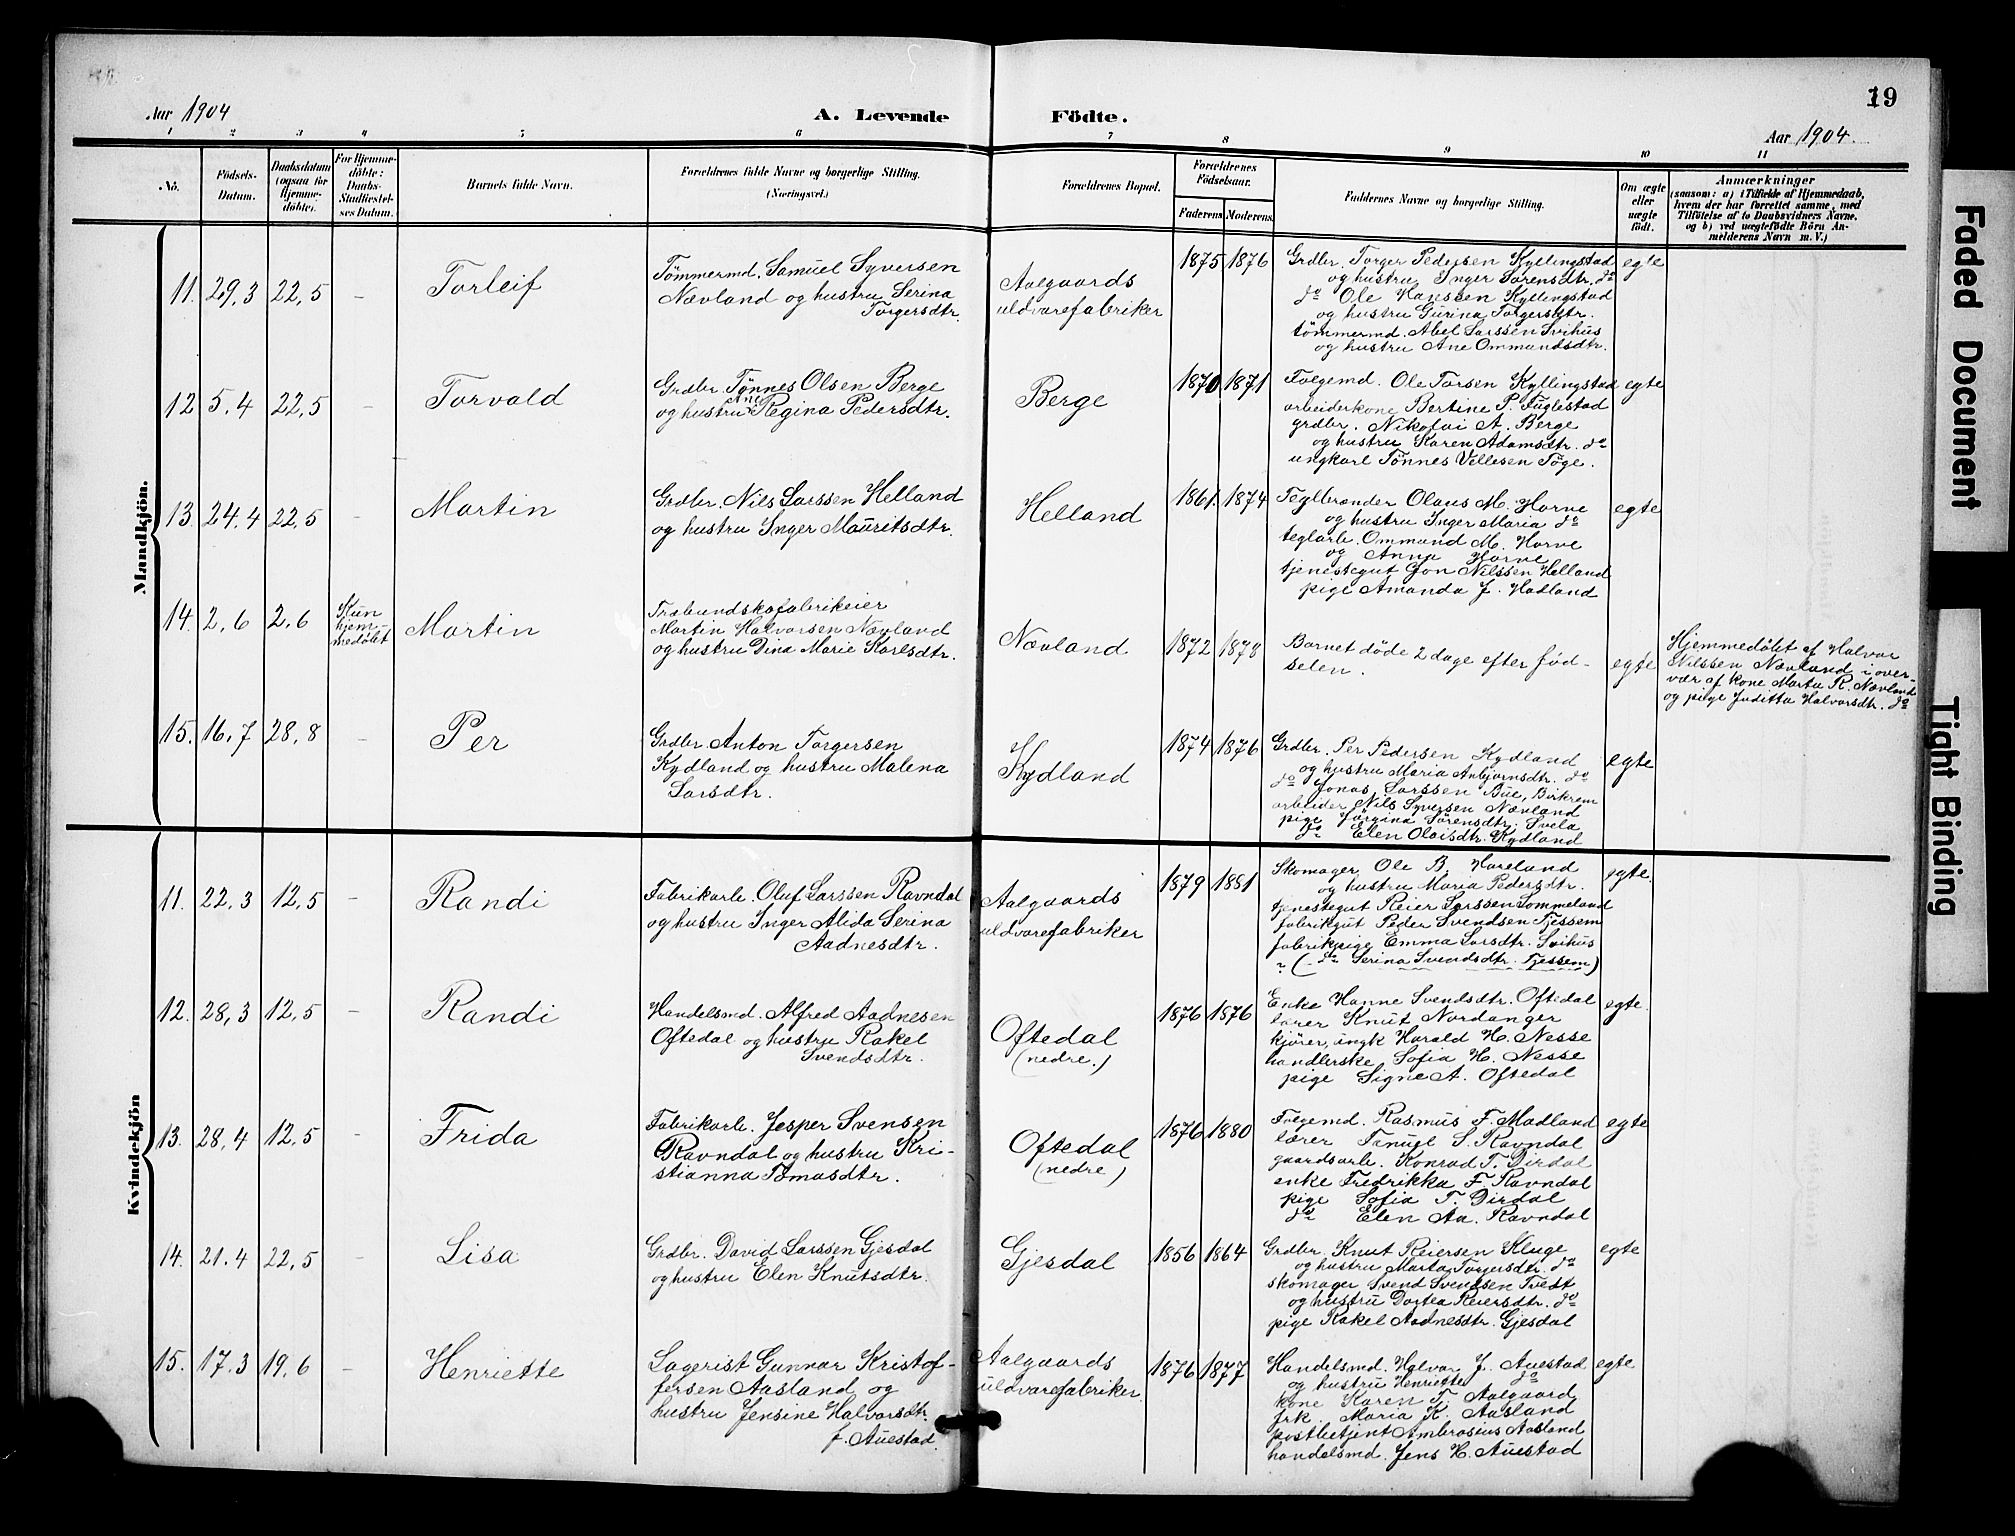 19
Aar 1904
A. Levende Födte.
Aar 1904.
1 2 3 4 5 6 7 8 9 10 11
No.
Födsels-
Datum.
Daabsdatum
(ogsaa for
Hjemme-
döbte).
For Hjemme-
döbte:
Daabs-
Stadfæstel-
ses Datum.
Barnets fulde Navn.
Forældrenes fulde Navne og borgerlige Stilling.
(Næringsvei.)
Forældrenes Bopæl.
Forældrenes
Födselsaar.
Faderens. Moderens.
Faddernes Navne og borgerlige Stilling.
Om ægte
eller
uægte
födt.
Anmærkninger
(saasom: a) i Tilfælde af Hjemmedaab,
hvem der har forrettet samme, med
Tilföielse af to Daabsvidners Navne,
og b) ved uægtefödte Börn An-
melderens Navn m. V.)
Mandkjön.
11. 29,3 22,5 -
Torleif
Tømmermd. Samuel Syversen
Nævland og hustru Serina
Torgersdtr.
Aalgaards
uldvarefabriker
1875 1876
Grdbr. Torger Pedersen Kyllingstad
og hustru Inger Sørensdtr. do
do Ole Hanssen Kyllingstad
og hustru Gurina Torgersdtr.
tømmermd. Abel Larssen Svihus
og hustru Ane Ommundsdtr.
egte
12 5.4 22,5 -
Torvald
Grdbr. Tønnes Olsen Berge
og hustru Ane Regina Pedersdtr.
Berge
1870 1871
Folgemd. Ole Torsen Kyllingstad
arbeiderkone Bertine P. Fuglestad
grdbr. Nikolai A. Berge
og hustru Karen Adamsdtr. do
ungkarl Tønnes Vellesen Tøge.
egte
13. 24.4 22,5 -
Martin
Grdbr. Nils Larssen Helland
og hustru Inger Mauritsdtr.
Helland
1861. 1874
Teglbrænder Olaus M. Horve
og hustru Inger Maria do
teglarb. Ommund M. Horve
og Anna Horve
tjenestegut Jon Nilssen Helland
pige Amanda J. Hadland
egte
14. 2.6 2.6
Kun
hjem-
medøbt
Martin
Træbundskofabrikeier
Martin Halvorsen Nævland
og hustru Dina Marie Karlsdtr.
Nævland
1872 1878
Barnet døde 2 dage efter fød-
selen.
egte
Hjemmedøbt af Halvor
Nilssen Nævland i over-
vær af kone Marta R. Nævland
og pige Juditta Halvorsdtr. do
15. 16.7 28.8 -
Per
Grdbr. Anton Torgersen
Kydland og hustru Malena
Larsdtr.
Kydland
1874 1876
Grdbr. Per Pedersen Kydland
og hustru Maria Anbjørnsdtr. do
do Jonas Larssen Bue, Birkrem
arbeider Nils Syversen Nævland
pige Jørgina Sørensdtr. Svela
do Elen Olaisdtr. Kydland
egte
Kvindekjön
11. 22,3 12,5 -
Randi
Fabrikarb. Oluf Larssen Ravndal
og hustru Inger Alida Serina
Aadnesdtr.
Aalgaards
uldvarefabriker
1879 1881
Skomager Ole B. Hareland
og hustru Maria Pedersdtr.
tjenestegut Reier Larssen Sommeland
fabrikgut Peder Svendsen Tjessem
fabrikpige Emma Larsdtr. Svihus
(do Serina Svendsdtr. Tjessem)
egte.
12. 28,3 12,5 -
Randi
Handelsmd. Alfred Aadnesen
Oftedal og hustru Rakel
Svendsdtr.
Oftedal
(nedre.)
1876 1876
Enke Hanne Svendsdtr. Oftedal
lærer Knut Nordanger
kjører, ungk Harald H. Nesse
handlerske Sofia H. Nesse
pige Signe A. Oftedal
egte.
13. 28,4 12,5 -
Frida
Fabrikarb. Jesper Svensen
Ravndal og hustru Kri-
stianna Tomasdtr.
Oftedal
(nedre)
1876 1880
Folgemd. Rasmus F. Madland
lærer Tanuel S. Ravndal
gaardsarb. Konrad T. Dirdal
enke Fredrikka F. Ravndal
pige Sofia T. Dirdal
do Elen Aa. Ravndal
egte
14. 21.4 22,5 -
Lisa
Grdbr. David Larssen Gjesdal
og hustru Elen Knutsdtr.
Gjesdal
1856 1864
Grdbr. Knut Reiersen Kluge
og hustru Marta Torgersdtr. do
skomager Svend Svendsen Tvedt
og hustru Dortea Reiersdtr. do
pige Rakel Aadnesdtr. Gjesdal
egte
15. 17.3 19,6 -
Henriette
Lagerist Gunnar Kristof-
fersen Aasland og
hustru Jensine Halvorsdtr.
f. Auestad.
Aalgaards
uldvarefabriker
1876 1877
Handelsmd. Halvor J. Auestad
og hustru Henriette do
kone Karen T. Aalgaard
frk. Maria K. Aasland
postbetjent Ambrosius Aasland
handelsmd. Jens H. Auestad
egte
Faded Document
Tight Binding